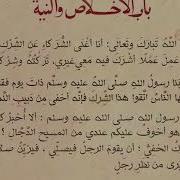 باب الاخلاص والنية
اللهُ تَبَارَكَ وَتَعَالَى: أَنَا أَغْنَى الشُّرَكَاءِ عَنِ الشِّرْكِ
عَمِلَ عَمَلًا أَشْرَكَ فِيهِ مَعِي غَيْرِي، تَرَكْتُ
نَا رسولُ اللهِ صلَّى اللهُ عليه وسلَّم ذاتَ يومٍ فقا
ها النَّاسُ اتَّقوا هذا الشِّركَ فإنَّه أخفَى من دَبيبِ النَّم
نا رسولُ اللهِ صلَّى اللهُ عليه وسلم : ألا أُخبرُ
هو أخوفُ عليكم عندي من المسيحِ الدَّجَّالِ ؟
كُ الخفيُّ؛ أن يقومَ الرجلُ فيصلِّي ، فيَزيدُ صلا
من نظرِ رجلٍ